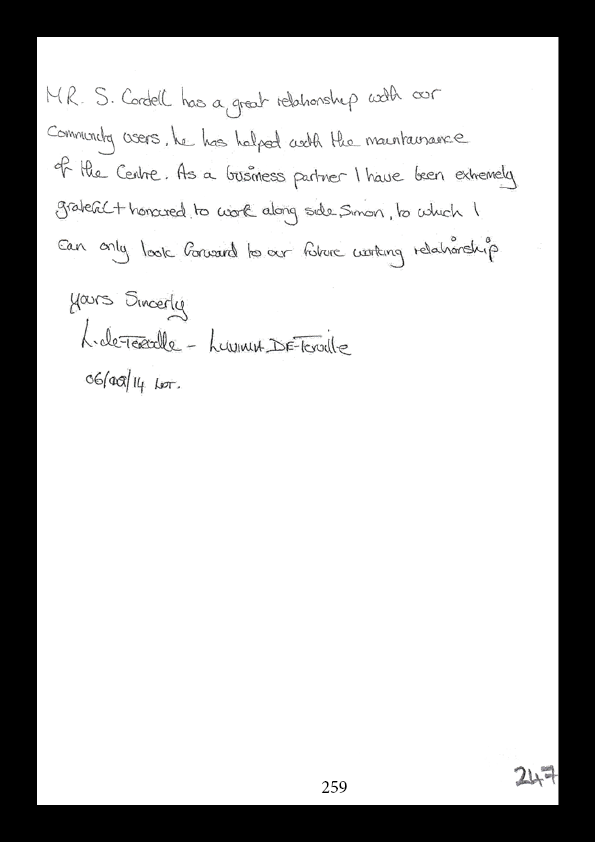 MR. S. Cordell has a great relationship with our
Community users, he has helped with the maintainance
of the Centre. As a business partner I have been extremely
grateful + honoured to work along side Simon, to which I
can only look forward to our future working relationship
Yours Sincerly
L. de-Terville - DE-Terville
06/ /14
259
247